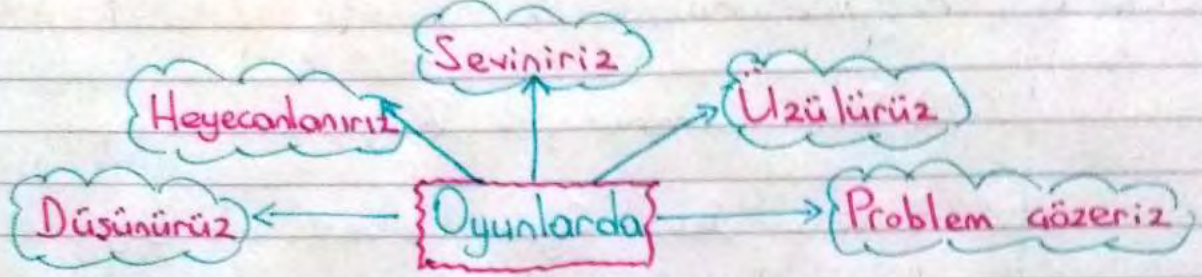 Seviniriz
Heyecanlanırız
Üzülürüz
Düşünürüz
Oyunlarda
Problem çözeriz